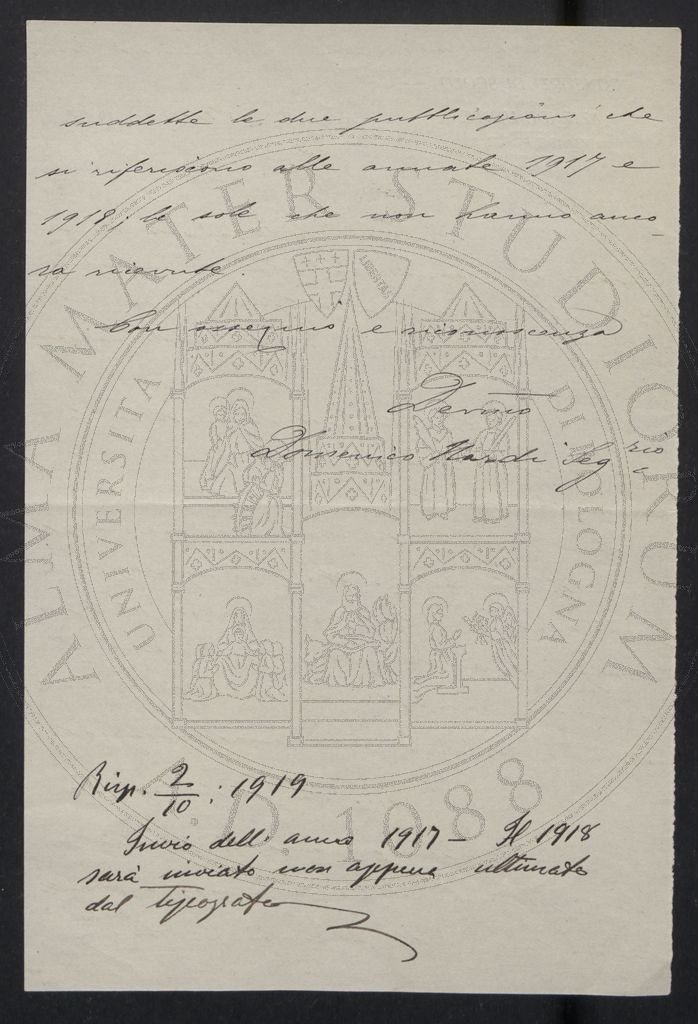 suddette le due pubblicazioni che
si riferiscono alle annate 1917 e
1918, le sole che non hanno anco-
ra ricevute.
Con ossequio e riconoscenza
Dev.mo
Domenico Nardi Seg.rio
Risp. 2/10: 1919
Invio dell' anno 1917 – Il 1918
sarà inviato non appena ultimato
dal tipografo
ALMA MATER STUDIORUM
A.D. 1088
UNIVERSITA DI BOLOGNA
LIBERTAS